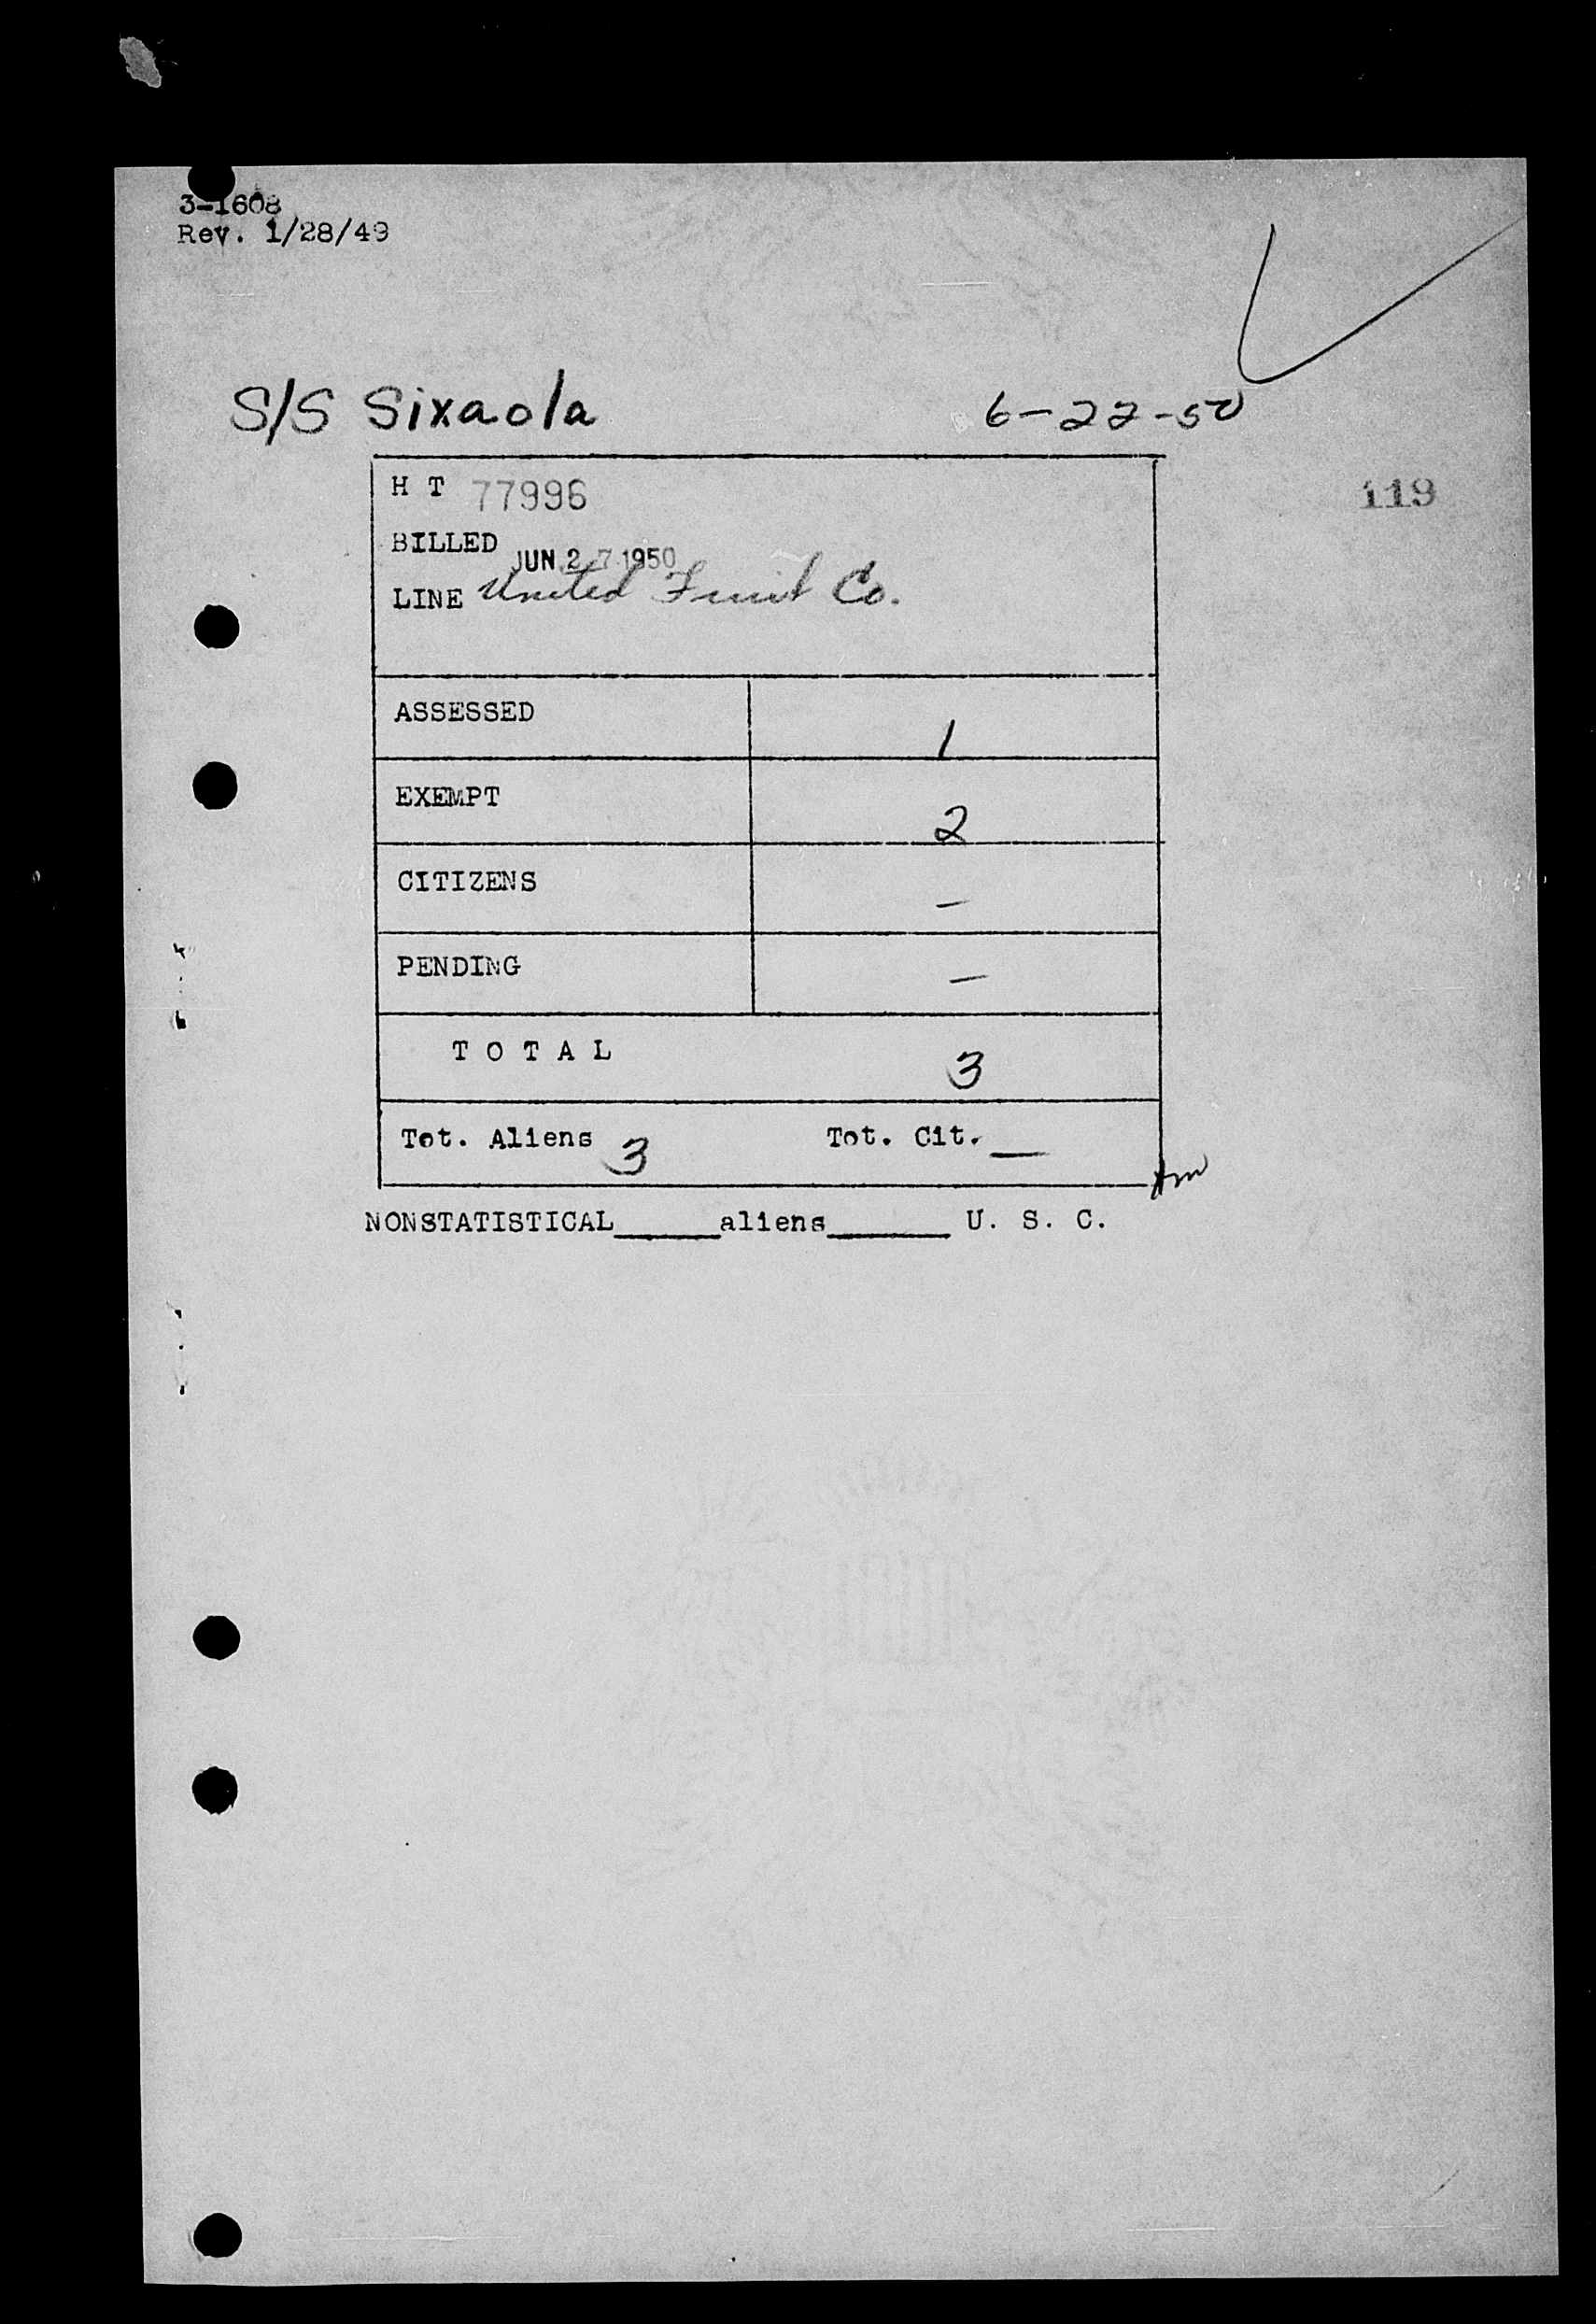 3-1608
Rev. 1/28/49
S/S Sixaola 6-22-50
H T 77996
119
BILLED JUN 27 1950
LINE United Fruit Co.
ASSESSED 1
EXEMPT 2
CITIZENS –
PENDING –
T O T A L 3
Tot. Aliens 3 Tot. Cit. —
NONSTATISTICAL______aliens_______ U. S. C.